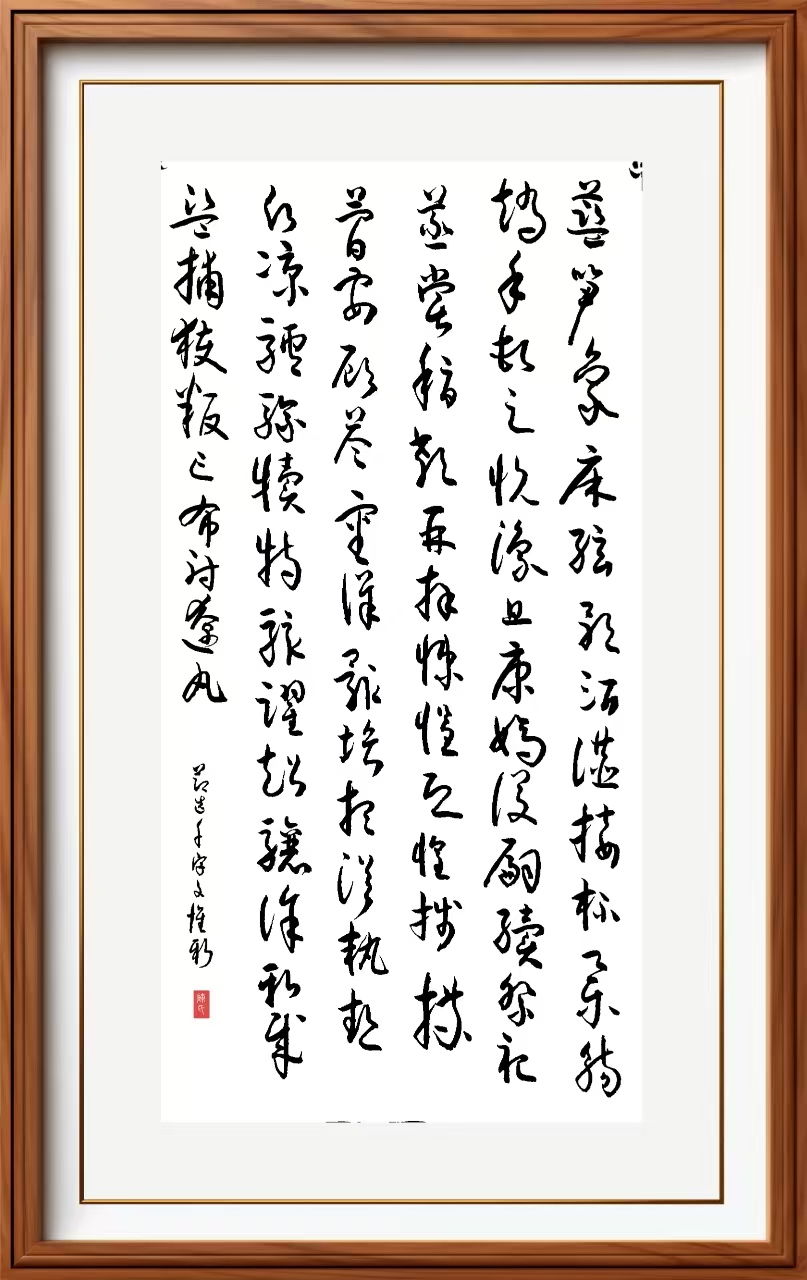 藍笋象床弦歌酒讌接杯舉觴
矯手頓足悅豫且康嫡後嗣續祭祀
蒸嘗稽顙再拜悚懼恐惶牋牒
簡要顧答審詳骸垢想浴執熱
願凉驢騾犢特駭躍超驤誅斬賊
盜捕獲叛亡布射遼丸
節選千字文